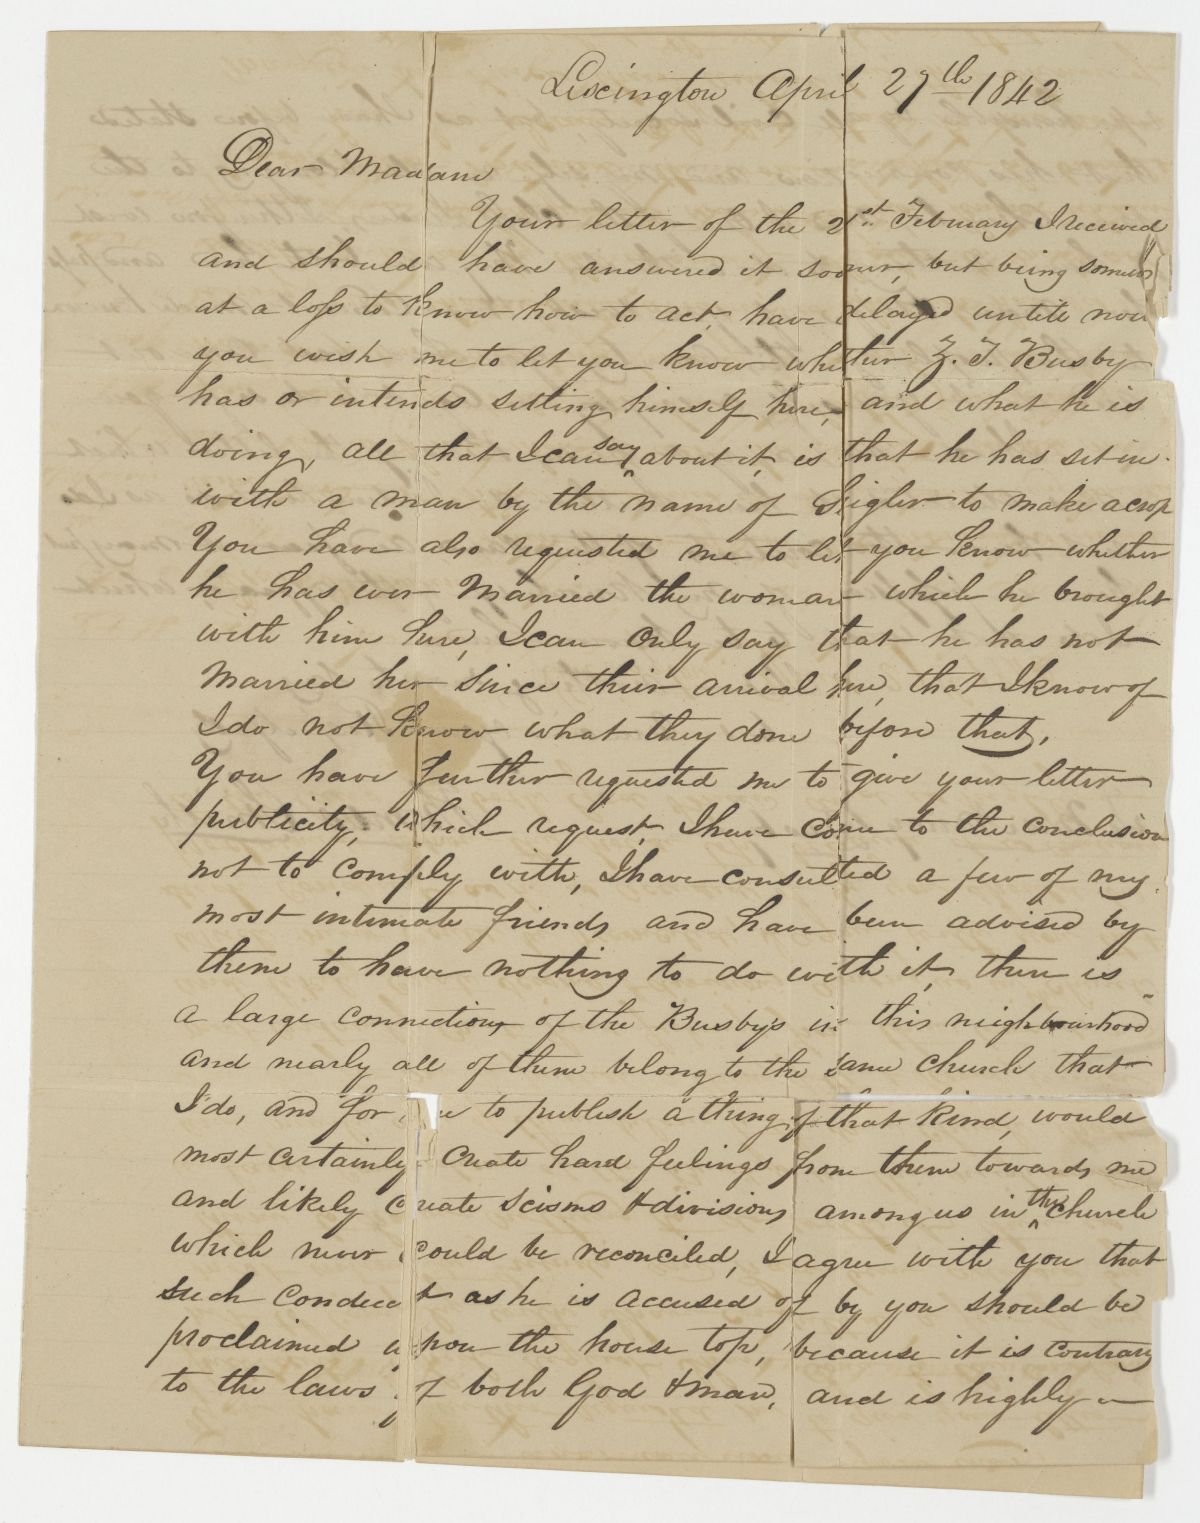 Lexington April 27th 1842
Dear Madam
Your letter of the 21st February I received
and should have answered it sooner, but being somew
at a loss to know how to act, have delayed untile now
you wish me to let you know whether Z. T. Busby
has or intends setling himself here, and what he is
doing, all that I can say about it, is that he has set in
with a man by the name of Sigler to make a crop
You have also requested me to let you know whether
he has ever Married the woman which he brought
with him here, I can only say that he has not
Married her since their arrival here, that I know of
I do not know what they done before that,
You have further requested me to give your letter
publicity, which request, I have come to the conclusion
not to comply with, I have consulted a few of my
most intimate friends and have been advised by
them to have nothing to do with it, there is
a large connection of the Busby's in this neighbourhood
and nearly all of them belong to the same church that
I do, and for me to publish a thing of that kind, would
most certainly create hard feelings from them towards me
and likely create scisms & divisions among us in the church
which never could be reconciled, I agree with you that
such conduct as he is accused of by you should be
proclaimed upon the house top, because it is contrary
to the laws of both God & man, and is highly